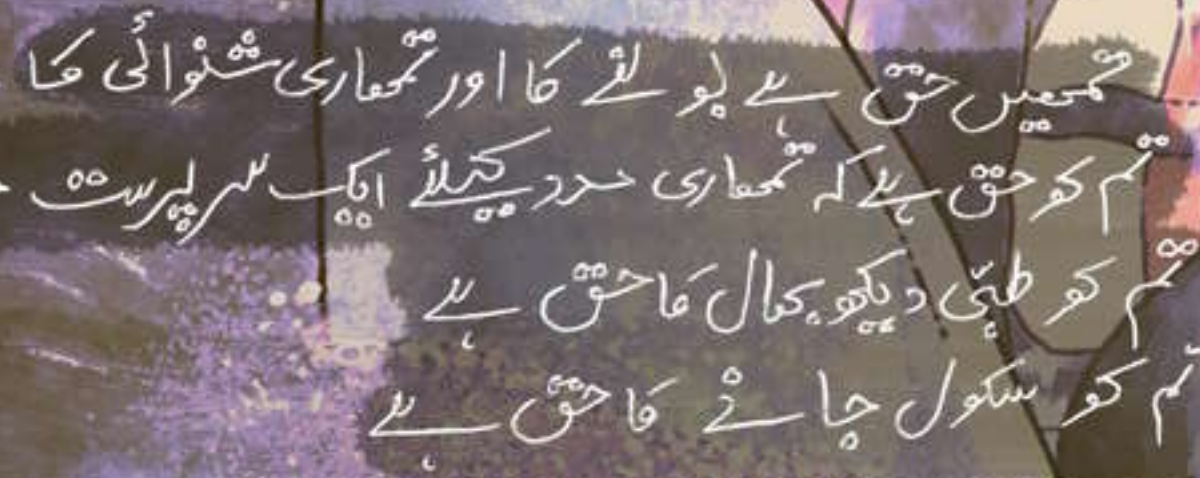 تمھیں حق ہے بولنے کا اور تمھاری شنوائی کا
تم کو حق ہے کہ تمھاری مدد کیلئے ایک سرپرست
تم کو طبّی دیکھ بھال کا حق ہے
تم کو سکول جانے کا حق ہے